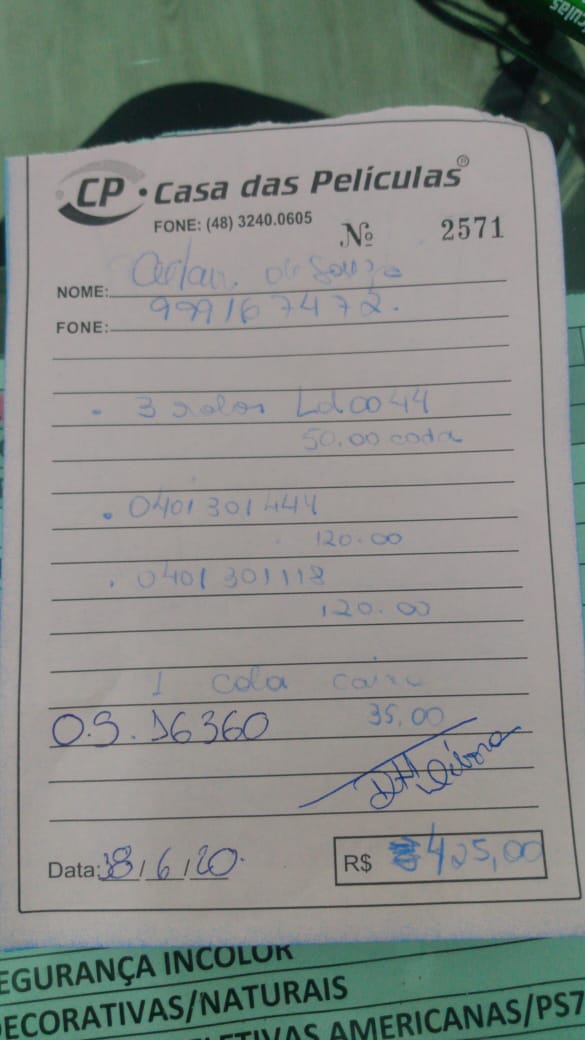 CP • Casa das Películas®
FONE: (48) 3240.0605
Nº 2571
NOME: de Souza
FONE: 999167472.
- 3 rolos Ld0044
50.00 cada
. 0401301444
120.00
. 0401301118
120.00
1 cola caixa
35,00
O.S. 16360
Débora
Data: 18/6/20.
R$ 425,00
EGURANÇA INCOLOR
DECORATIVAS/NATURAIS
LETIVAS AMERICANAS/PS7